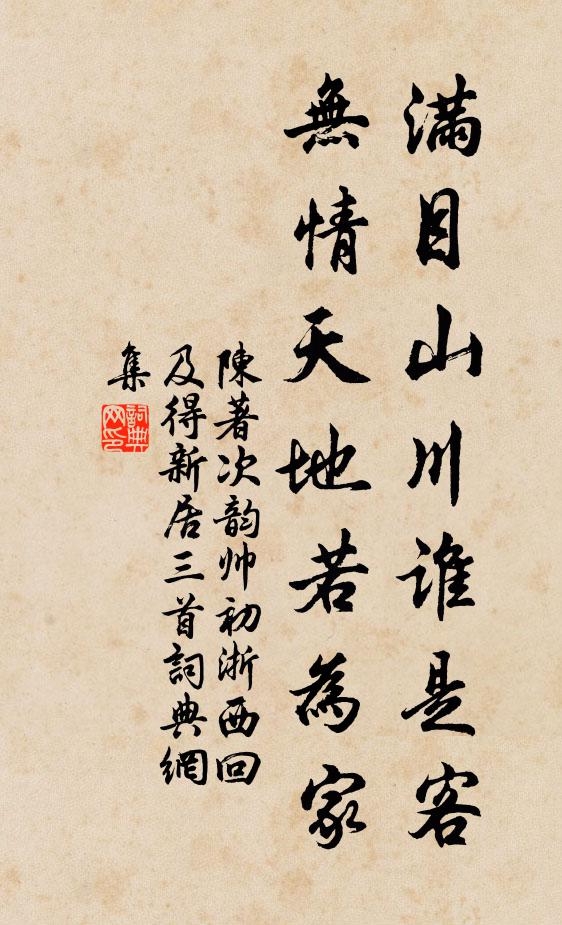 滿目山川誰是客
無情天地若為家
陳著次韵帅初浙西回
及得新居三首詞典網
集
詞典
网印